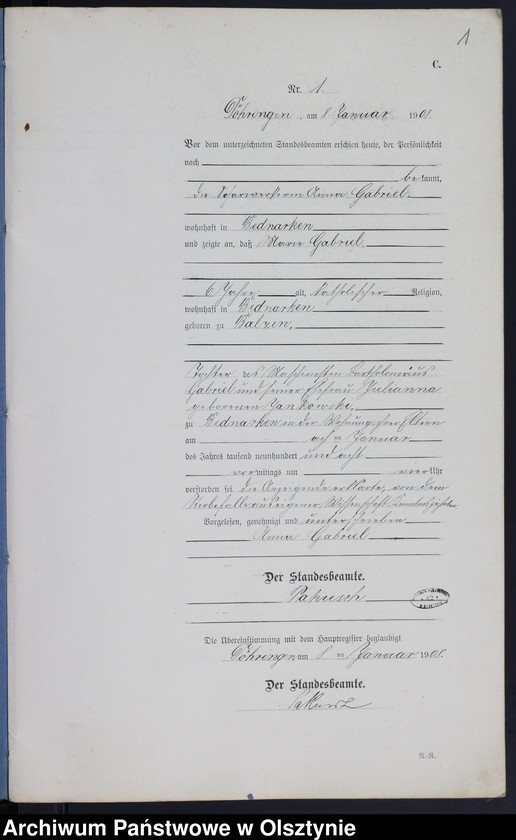 1
C.
Nr. 1.
Döhringen, am 8 Januar 1908.
Vor dem unterzeichneten Standesbeamten erschien heute, der Persönlichkeit
nach
bekannt,
die Scharwerkerin Anna Gabriel,
wohnhaft in Bednarken
und zeigte an, daß Marie Gabriel,
6 Jahre alt, katholischer Religion,
wohnhaft in Bednarken
geboren zu Balzen,
Tochter des Maschinisten Bartholomäus
Gabriel und seiner Ehefrau Julianna
geborenen Jankowski,
zu Bednarken in der Wohnung ihrer Eltern
am acht ten Januar
des Jahres tausend neunhundert und acht
vormittags um vier Uhr
verstorben sei. die Anzeigende erklärte, von dem
Sterbefalle aus eigener Wissenschaft
Vorgelesen, genehmigt und unterschrieben
Anna Gabriel
Der Standesbeamte.
Die Übereinstimmung mit dem Hauptregister beglaubigt
Döhringen am 8 ten Januar 1908.
Der Standesbeamte.
R.-R.
Archiwum Państwowe w Olsztynie